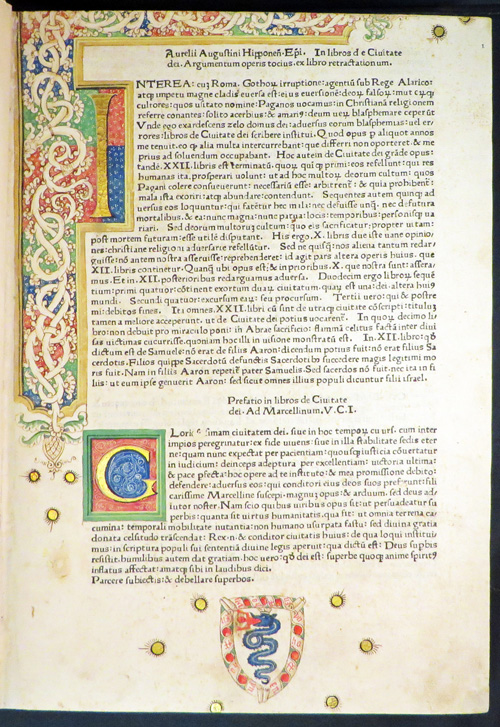 Aurelii Augustini Hipponeñ. Epi. In libros de Ciuitate
dei. Argumentum operis tocius. ex libro retractationum.
INTEREA: cuȝ Roma. Gothoꝝ irruptione: agentiū sub Rege Alarico:
atqꝫ impetu magne cladis euersa est: eius euersionē: deoꝝ falsoꝝ: mut cuꝗ:
cultores: quos uitato nomine: Paganos uocamus: in Christianā religionem
referre conantes: solito acerbius: & amarius: deum ueꝝ blasphemare ceperūt
Vnde ego exardescens zelo domus dei: aduersus eorum blasphemias: uel er
rores: libros de Ciuitate dei scribere institui. Quod opus p aliquot annos
me tenuit. eo ꝙ alia multa intercurrebant: que differri non oporteret: & me
prius ad soluendum occupabant. Hoc autem de Ciuitate dei grāde opus:
tandē. XXII. libris est terminatū. quoꝝ. quiꝗ primi: eos refellunt: qui res
humanas ita. prosperari uolunt: ut ad hoc multoꝝ. deorum cultum: quos
Pagani colere consueuerunt: necessariū esse: arbitrent: & quia prohibent:
mala ista exoriri: atqꝫ abundare: contendunt. Sequentes autem quinqꝫ ad
uersus eos loquuntur: qui fatētur hec mala: nec defuisse unqꝫ. nec defutura
mortalibus. & ea: nunc magna: nunc parua: locis: temporibus: personisqꝫ ua
riari. Sed deorum multoꝝ cultum: quo eis sacrificatur: propter uitam:
post mortem futuram: esse utilē disputant. His ergo. X. libris due iste uane opinio
nes: christiane religioni aduersarie refellūtur. Sed ne quisꝗ: nos aliena tantum redar
guisse: nō autem nostra asseruisse: reprehenderet: id agit pars altera operis huius. que
XII. libris continetur. Quanqꝫ ubi opus est: & in prioribus. X. que nostra sunt: assera
mus. Et in. XII. posterioribus redarguamus aduersa. Duodecim ergo libroꝝ. sequē
tium: primi quatuor: cōtinent exortum duaꝝ ciuitatum. quaꝝ est una: dei. altera huiꝰ
mundi. Secundi quatuor: excursum eaꝝ: seu procursum. Tertii uero: qui & postre
mi: debitos fines. Ita omnes. XXII. libri cū sint de utraqꝫ ciuitate cōscripti: titulum
tamen a meliore acceperunt. ut de Ciuitate dei potius uocarent. In quoꝝ decimo li
bro: non debuit pro miraculo poni: in Abrae sacrificio: flammā celitus factā inter diui
sas uictimas cucurrisse. quoniam hoc illi in uisione monstratū est. In. XII. libro: ꝙ
dictum est de Samuele: nō erat de filiis Aaron: dicendum potius fuit: nō erat filius Sa
cerdotis. Filios quippe Sacerdotū defunctis Sacerdotibꝰ succedere magis legitimi mo
ris fuit. Nam in filiis Aaron repetit pater Samuelis. Sed sacerdos nō fuit. nec ita in fi
liis: ut eum ipse genuerit Aaron: sed sicut omnes illius populi dicuntur filii israel.
Prefatio in libros de Ciuitate
dei. Ad Marcellinum. V.C.I.
GLoriosissimam ciuitatem dei. siue in hoc tempoꝝ cursu. cum inter
impios peregrinatur: ex fide uiuens: siue in illa stabilitate sedis eter
ne: quam nunc expectat per pacientiam: quousqꝫ iusticia cōuertatur
in iudicium: deinceps adeptura per excellentiam: uictoria ultima:
& pace pfecta: hoc opere ad te instituto: & mea promissione debito:
defendere: aduersus eos: qui conditori eius deos suos preferunt: fili
carissime Marcelline suscepi. magnuȝ opus: & arduum. sed deus ad
iutor noster. Nam scio quibus uiribus opus sit: ut persuadeatur su
perbis: quanta sit uirtus humanitatis. qua fit: ut omnia terrena ca
cumina: temporali mobilitate nutantia: non humano usurpata fastu: sed diuina gratia
donata celsitudo trāscendat. Rex. n. & conditor ciuitatis huius: de qua loqui institui
mus: in scriptura populi sui sententiā diuine legis aperuit: qua dictū est: Deus supbis
resistit. humilibus autem dat gratiam. hoc uero: ꝙ dei est: superbe quoqꝫ anime spiritꝰ
inflatus affectat: amatqꝫ sibi in laudibus dici.
Parcere subiectis: & debellare superbos.